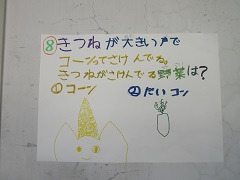 ⑧きつねが大きい声で
コーンってさけんでる。
きつねがさけんでる野菜は?
①コーン ②だいコン